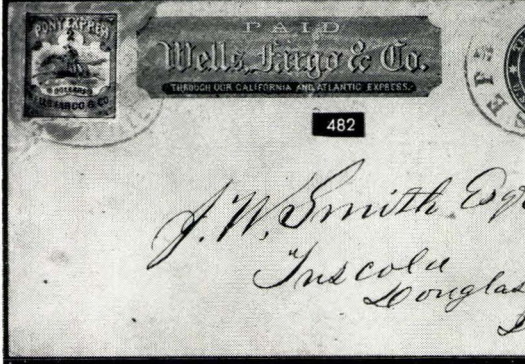 PONY EXPRESS
2
DOLLARS
WELLS, FARGO & CO
PAID
Wells, Fargo & Co.
THROUGH OUR CALIFORNIA AND ATLANTIC EXPRESS.
482
J. W. Smith Esq
Tuscola
Douglas